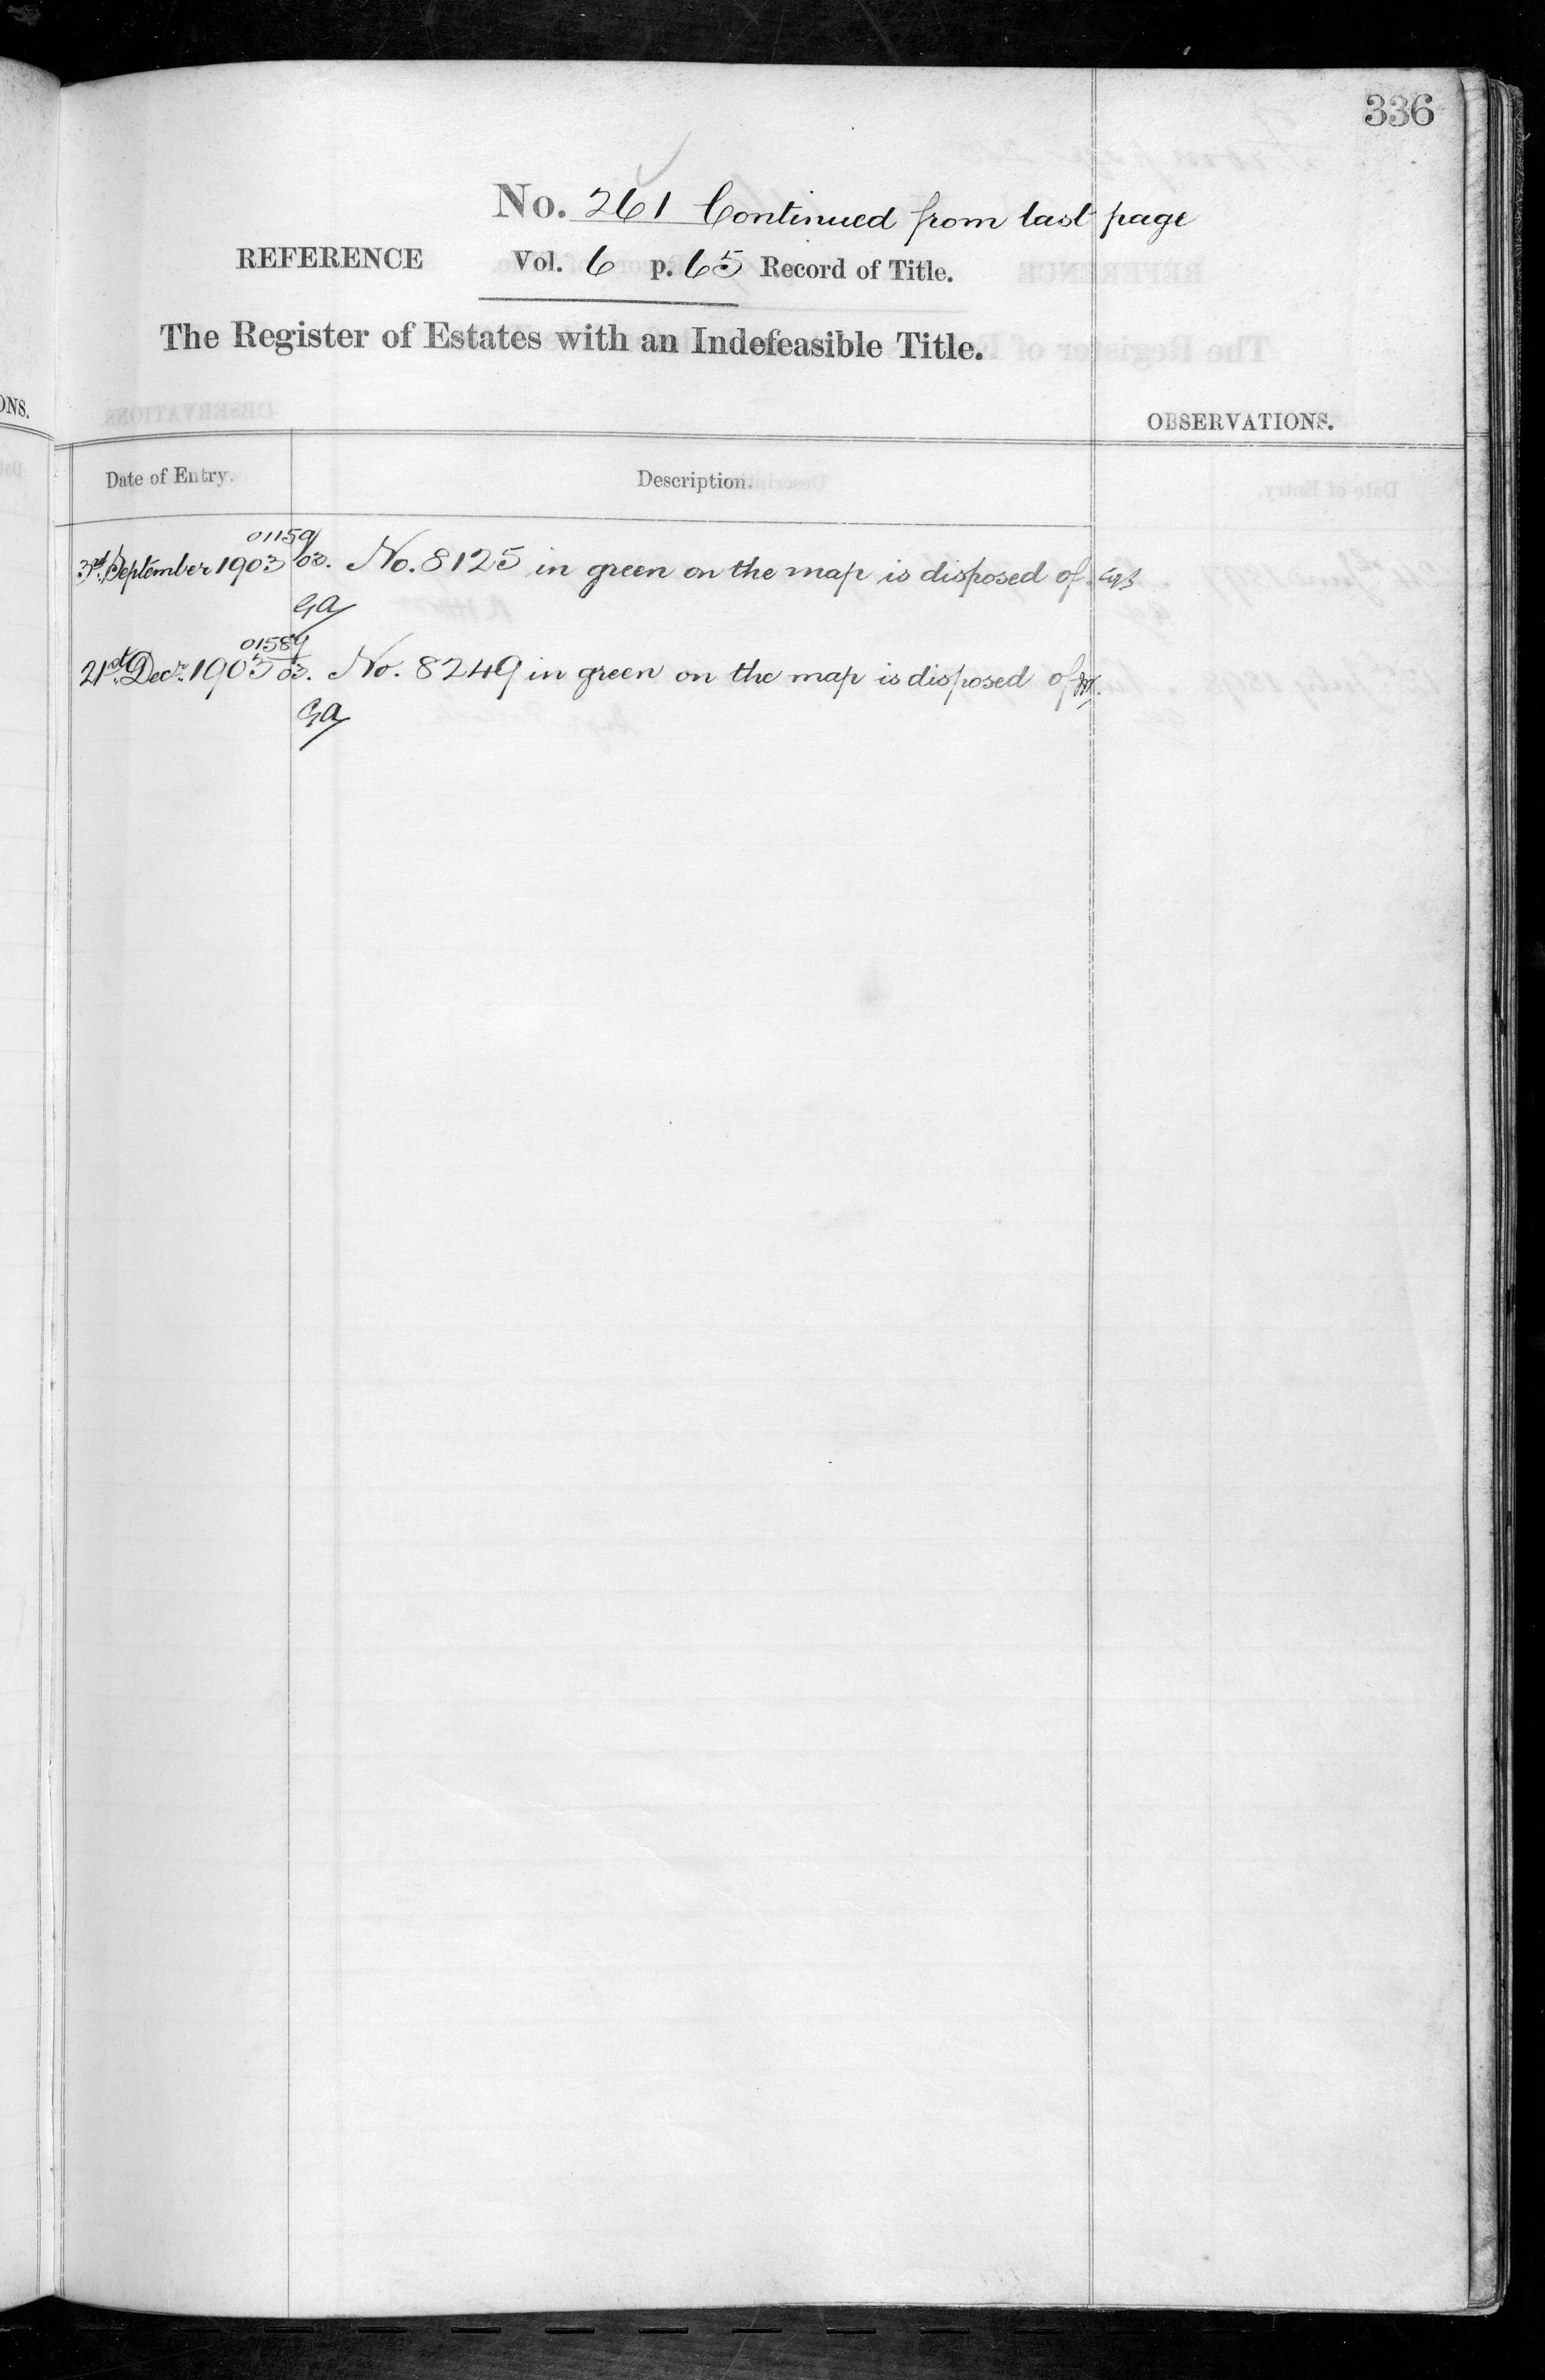 336
No. 261 Continued from last page
REFERENCE Vol. 6 p. 65 Record of Title.
The Register of Estates with an Indefeasible Title.
ONS.
OBSERVATIONS.
Date of Entry. Description.
01159/03.
3rd September 1903 No. 8125 in green on the map is disposed of.
GA
01584/03.
21st Decr. 1903 No. 8249 in green on the map is disposed of
GA